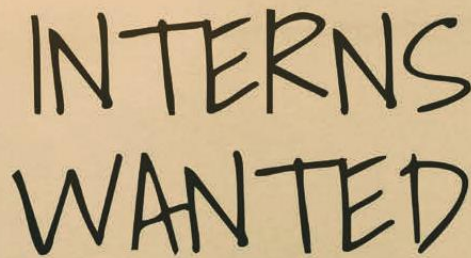 INTERNS
WANTED